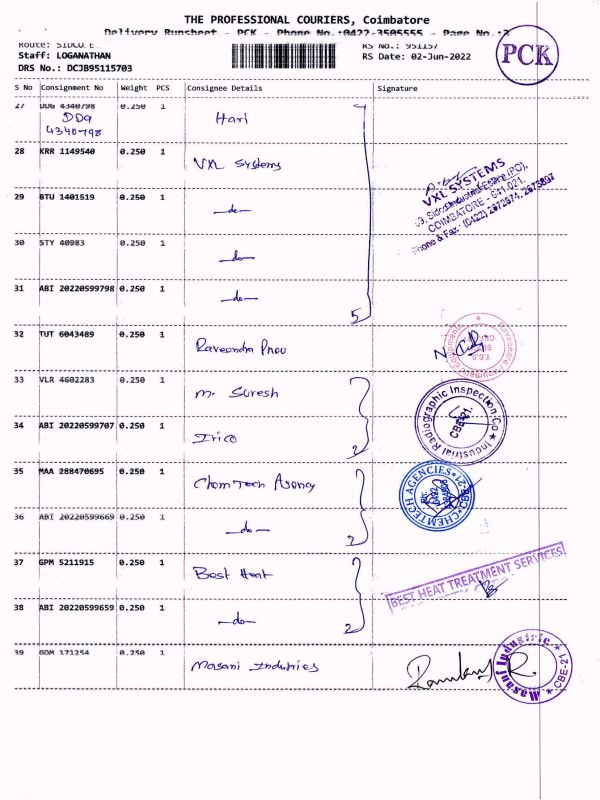 THE PROFESSIONAL COURIERS, Coimbatore
Delivery Runsheet - PCK - Phone No.:0422-3505555 - Page No.:3
Route: SIDCO E.
RS No.: 951157
Staff: LOGANATHAN
RS Date: 02-Jun-2022
DRS No.: DCJB95115703
PCK
S No Consignment No Weight PCS Consignee Details Signature
27 DDG 4340798 0.250 1 Hari
DDG
4340798
28 KRR 1149540 0.250 1 VXL Systems
29 BTU 1401519 0.250 1 —do—
30 STY 40983 0.250 1 —do—
31 ABI 20220599798 0.250 1 —do—
5
VXL SYSTEMS
COIMBATORE - 641 021.
Phone & Fax - (0422) 2672674, 2673897
32 TUT 6043489 0.250 1 Raveendra Pneu
33 VLR 4602283 0.250 1 M. Suresh
34 ABI 20220599707 0.250 1 Irico
2
Industrial Radiographic Inspection Co
CBE-21.
35 MAA 288470695 0.250 1 Chem Tech Agency
36 ABI 20220599669 0.250 1 —do—
2
CHEMTECH AGENCIES
CBE-21
37 GPM 5211915 0.250 1 Best Heat
38 ABI 20220599659 0.250 1 —do—
2
BEST HEAT TREATMENT SERVICES
39 GOM 171254 0.250 1 Masani Industries
Masanj Industrie
CBE-21